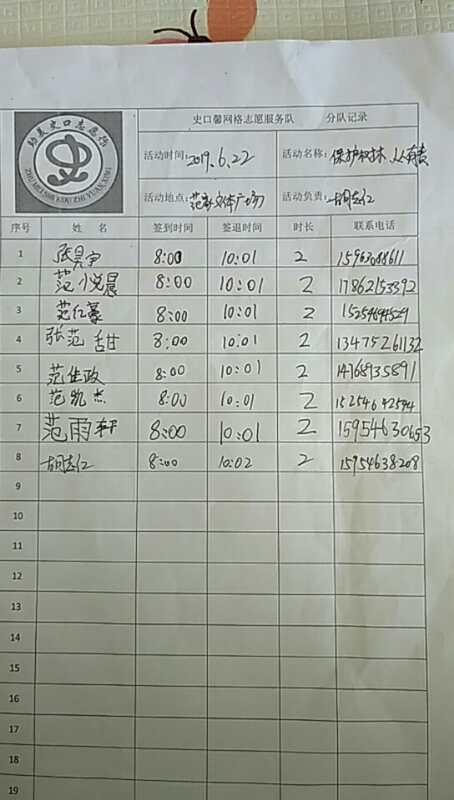 助美史口志愿行
ZHU MEI SHI KOU ZHI YUAN XING
史口馨网格志愿服务队 分队记录
活动时间: 2019.6.22 活动名称: 保护树木,人人有责
活动地点: 范家文体广场 活动负责: 胡志仁
序号 姓 名 签到时间 签退时间 时长 联系电话
1 张昊宇 8:00 10:01 2
2 范小晨 8:00 10:01 2 17862153392
3 范仁豪 8:00 10:01 2
4 张范甜 8:00 10:01 2 13475261132
5 范佳政 8:00 10:01 2
6 范凯杰 8:00 10:01 2
7 范雨轩 8:00 10:01 2 15954630653
8 胡志仁 8:00 10:02 2 15954638208
9
10
11
12
13
14
15
16
17
18
19